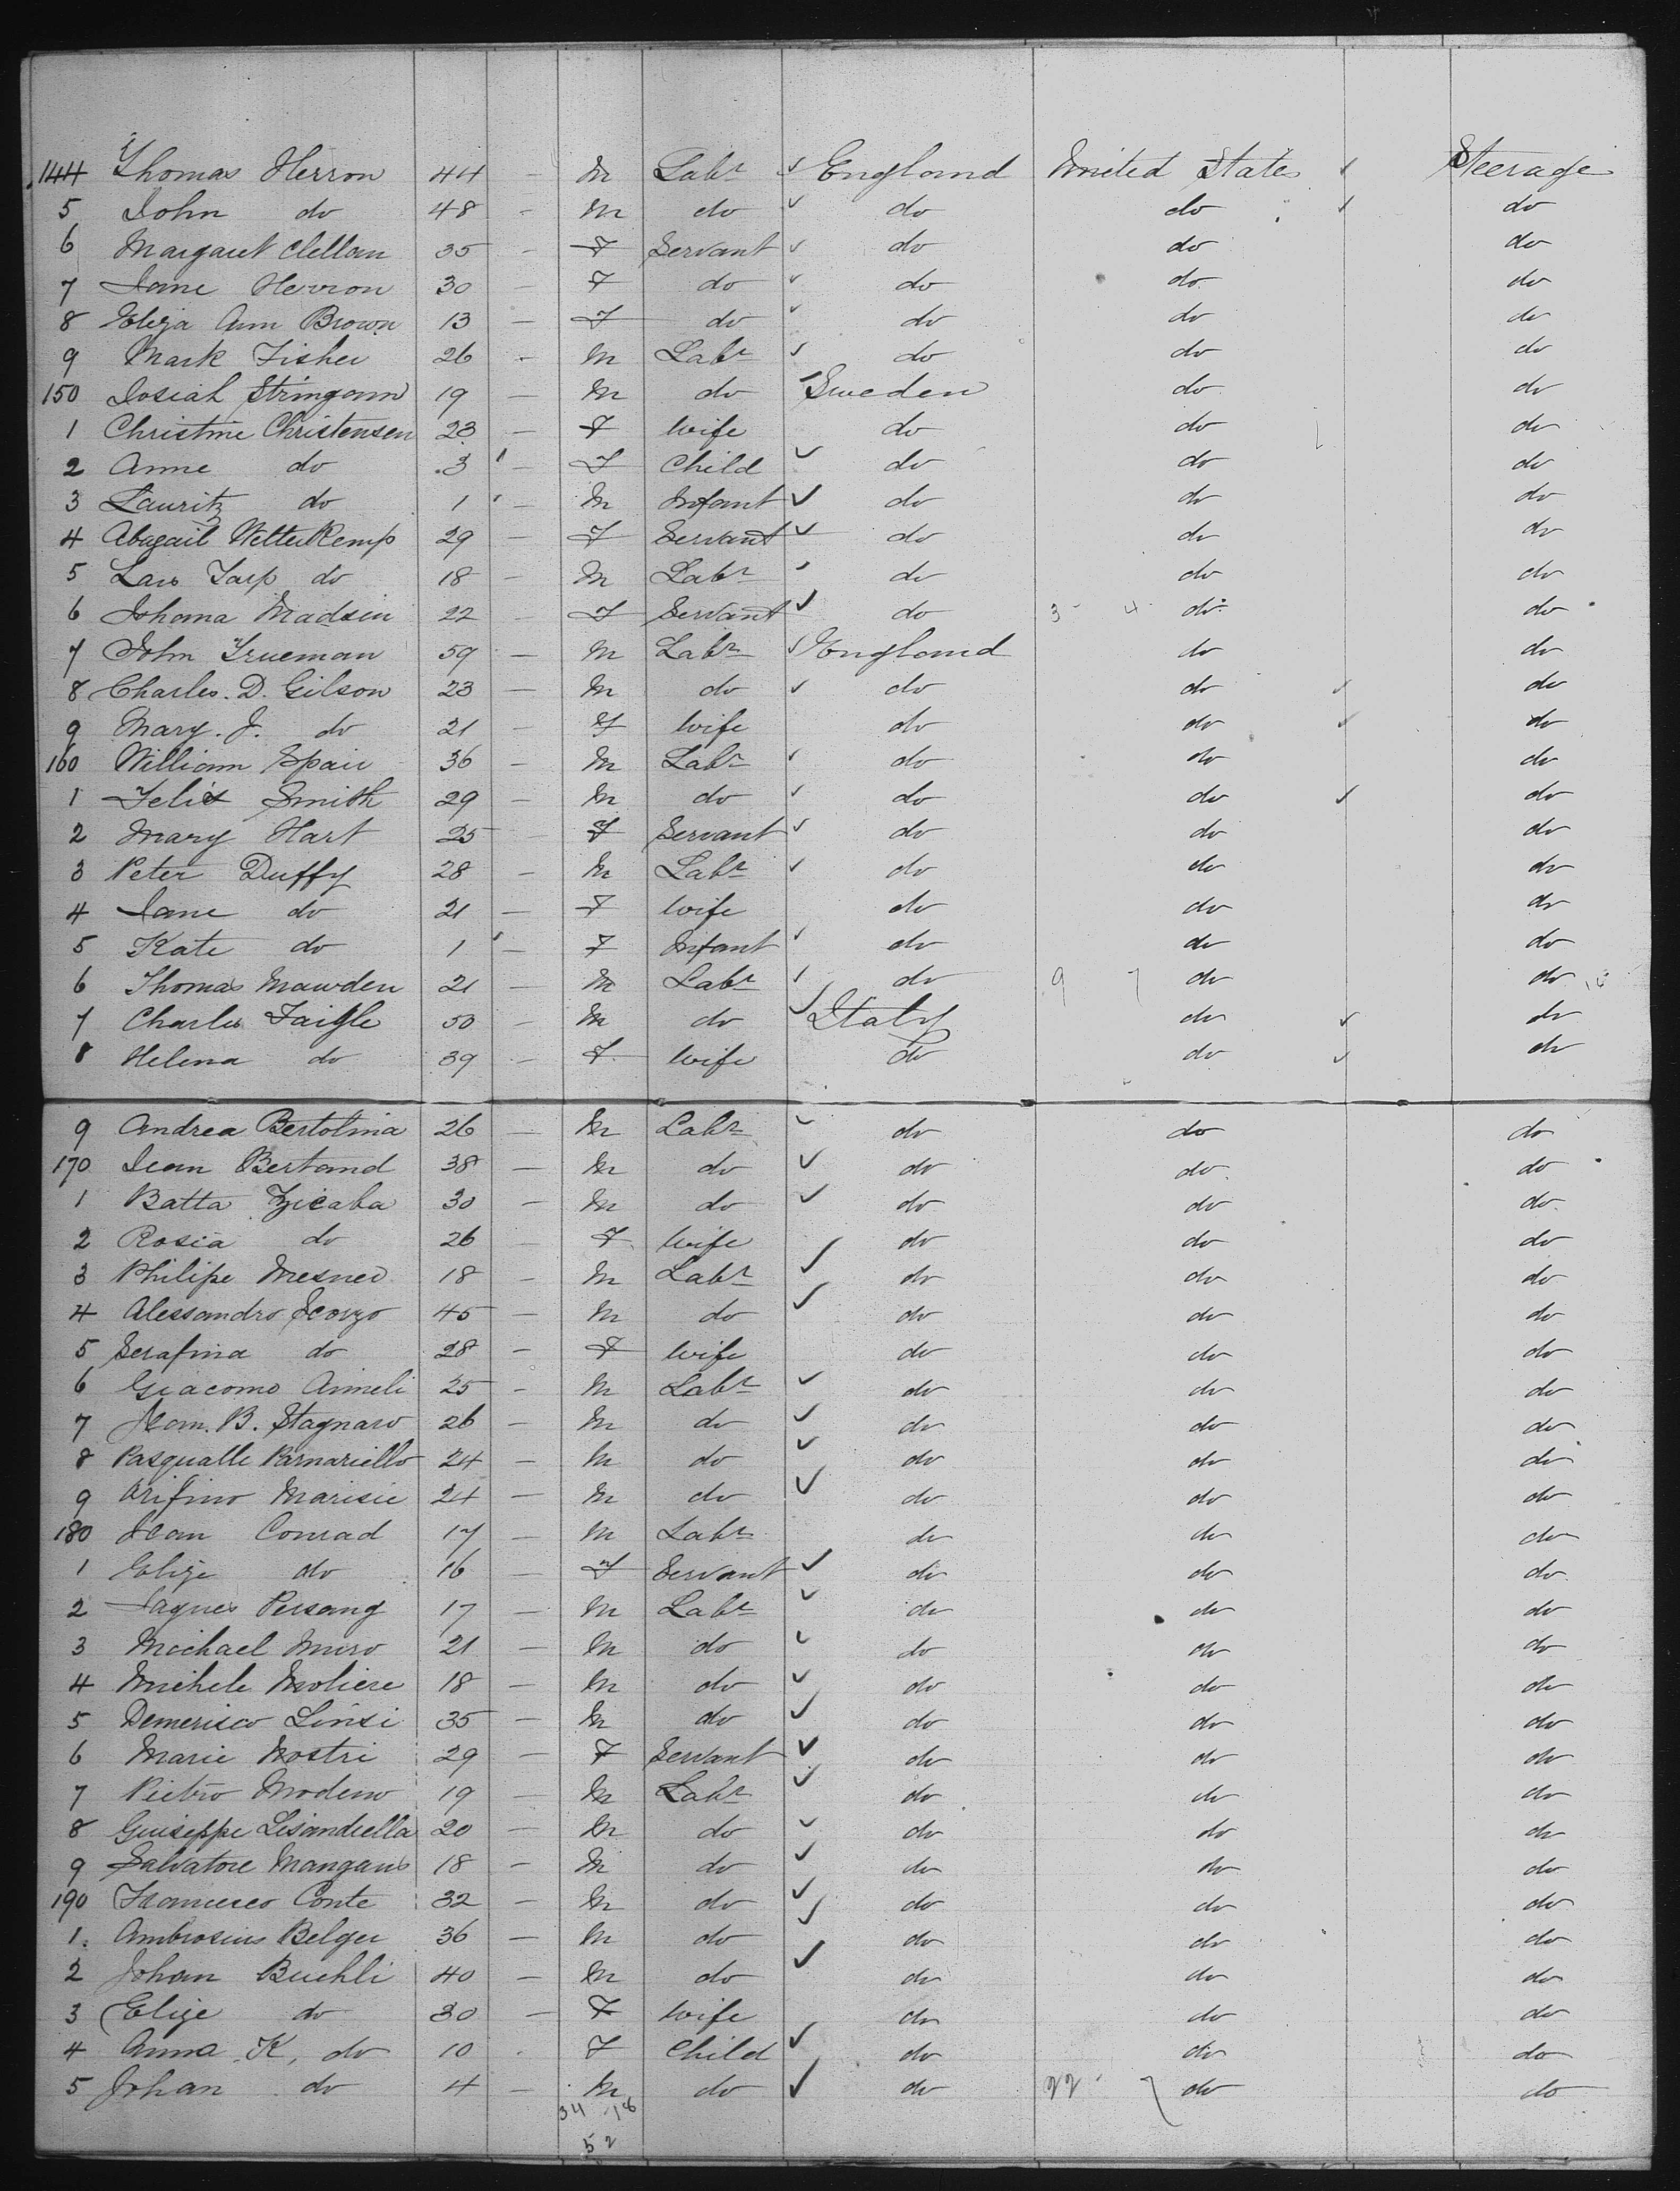 144 Thomas Herron 44 - M Labr England United States Steerage
5 John do 48 - M do do do do
6 Margaret Clellan 35 - F Servant do do do
7 Jane Herron 30 - F do do do do
8 Eliza Ann Brown 13 - F do do do do
9 Mark Fisher 26 - M Labr do do do
150 Josiah Stringann 19 - M do Sweden do do
1 Christine Christensen 23 - F Wife do do do
2 Anne do 3 - F Child do do do
3 Lauritz do 1 M Infant do do do
4 Abagail WetterKemp 29 - F Servant do do do
5 Lars Tarp do 18 - M Labr do do do
6 Johana Madsen 22 - F Servant do 3 - 4 do do
7 John Trueman 59 - M Labr England do do
8 Charles. D. Gilson 23 - M do do do do
9 Mary. J. do 21 - F Wife do do do
160 William Spair 36 - M Labr do do do
1 Felix Smith 29 - M do do do do
2 Mary Hart 25 - F Servant do do do
3 Peter Duffy 28 - M Labr do do do
4 Jane do 21 - F Wife do do do
5 Kate do 1 - F Infant do do do
6 Thomas Mawden 21 - M Labr do 9 7 do do
7 Charles Faigle 50 - M do Italy do do
8 Helena do 39 - F Wife do do do
9 Andrea Bertolina 26 - M Labr do do do
170 Jean Bertand 38 - M do do do do
1 Batta 30 - M do do do do
2 Rosia do 26 - F Wife do do do
3 Philipe Mesner 18 - M Labr do do do
4 Alessandro Scorzo 45 - M do do do do
5 Serafina do 28 - F Wife do do do
6 Giacomo Aimeli 25 - M Labr do do do
7 B. Stagnaro 26 - M do do do do
8 Pasqualle Parnariello 24 - M do do do do
9 Orifino Marisie 24 - M do do do do
180 Jean Conrad 17 - M Labr do do do
1 Elize do 16 - F Servant do do do
2 Jaques Persang 17 - M Labr do do do
3 Michael Muro 21 - M do do do do
4 Michele Moliere 18 - M do do do do
5 Demerisco Linsi 35 - M do do do do
6 Marie Mostri 29 - F Servant do do do
7 Pietro Modeno 19 - M Labr do do do
8 Guiseppe Lisandrella 20 - M do do do do
9 Salvatore Mangano 18 - M do do do do
190 Francesco Conte 32 - M do do do do
1. Ambrosius Belger 36 - M do do do do
2 Johan Buehli 40 - M do do do do
3 Elize do 30 - F Wife do do do
4 Anna K, do 10 F Child do do do
5 Johan do 4 - M do do 22 - 7 do do
34 18
52